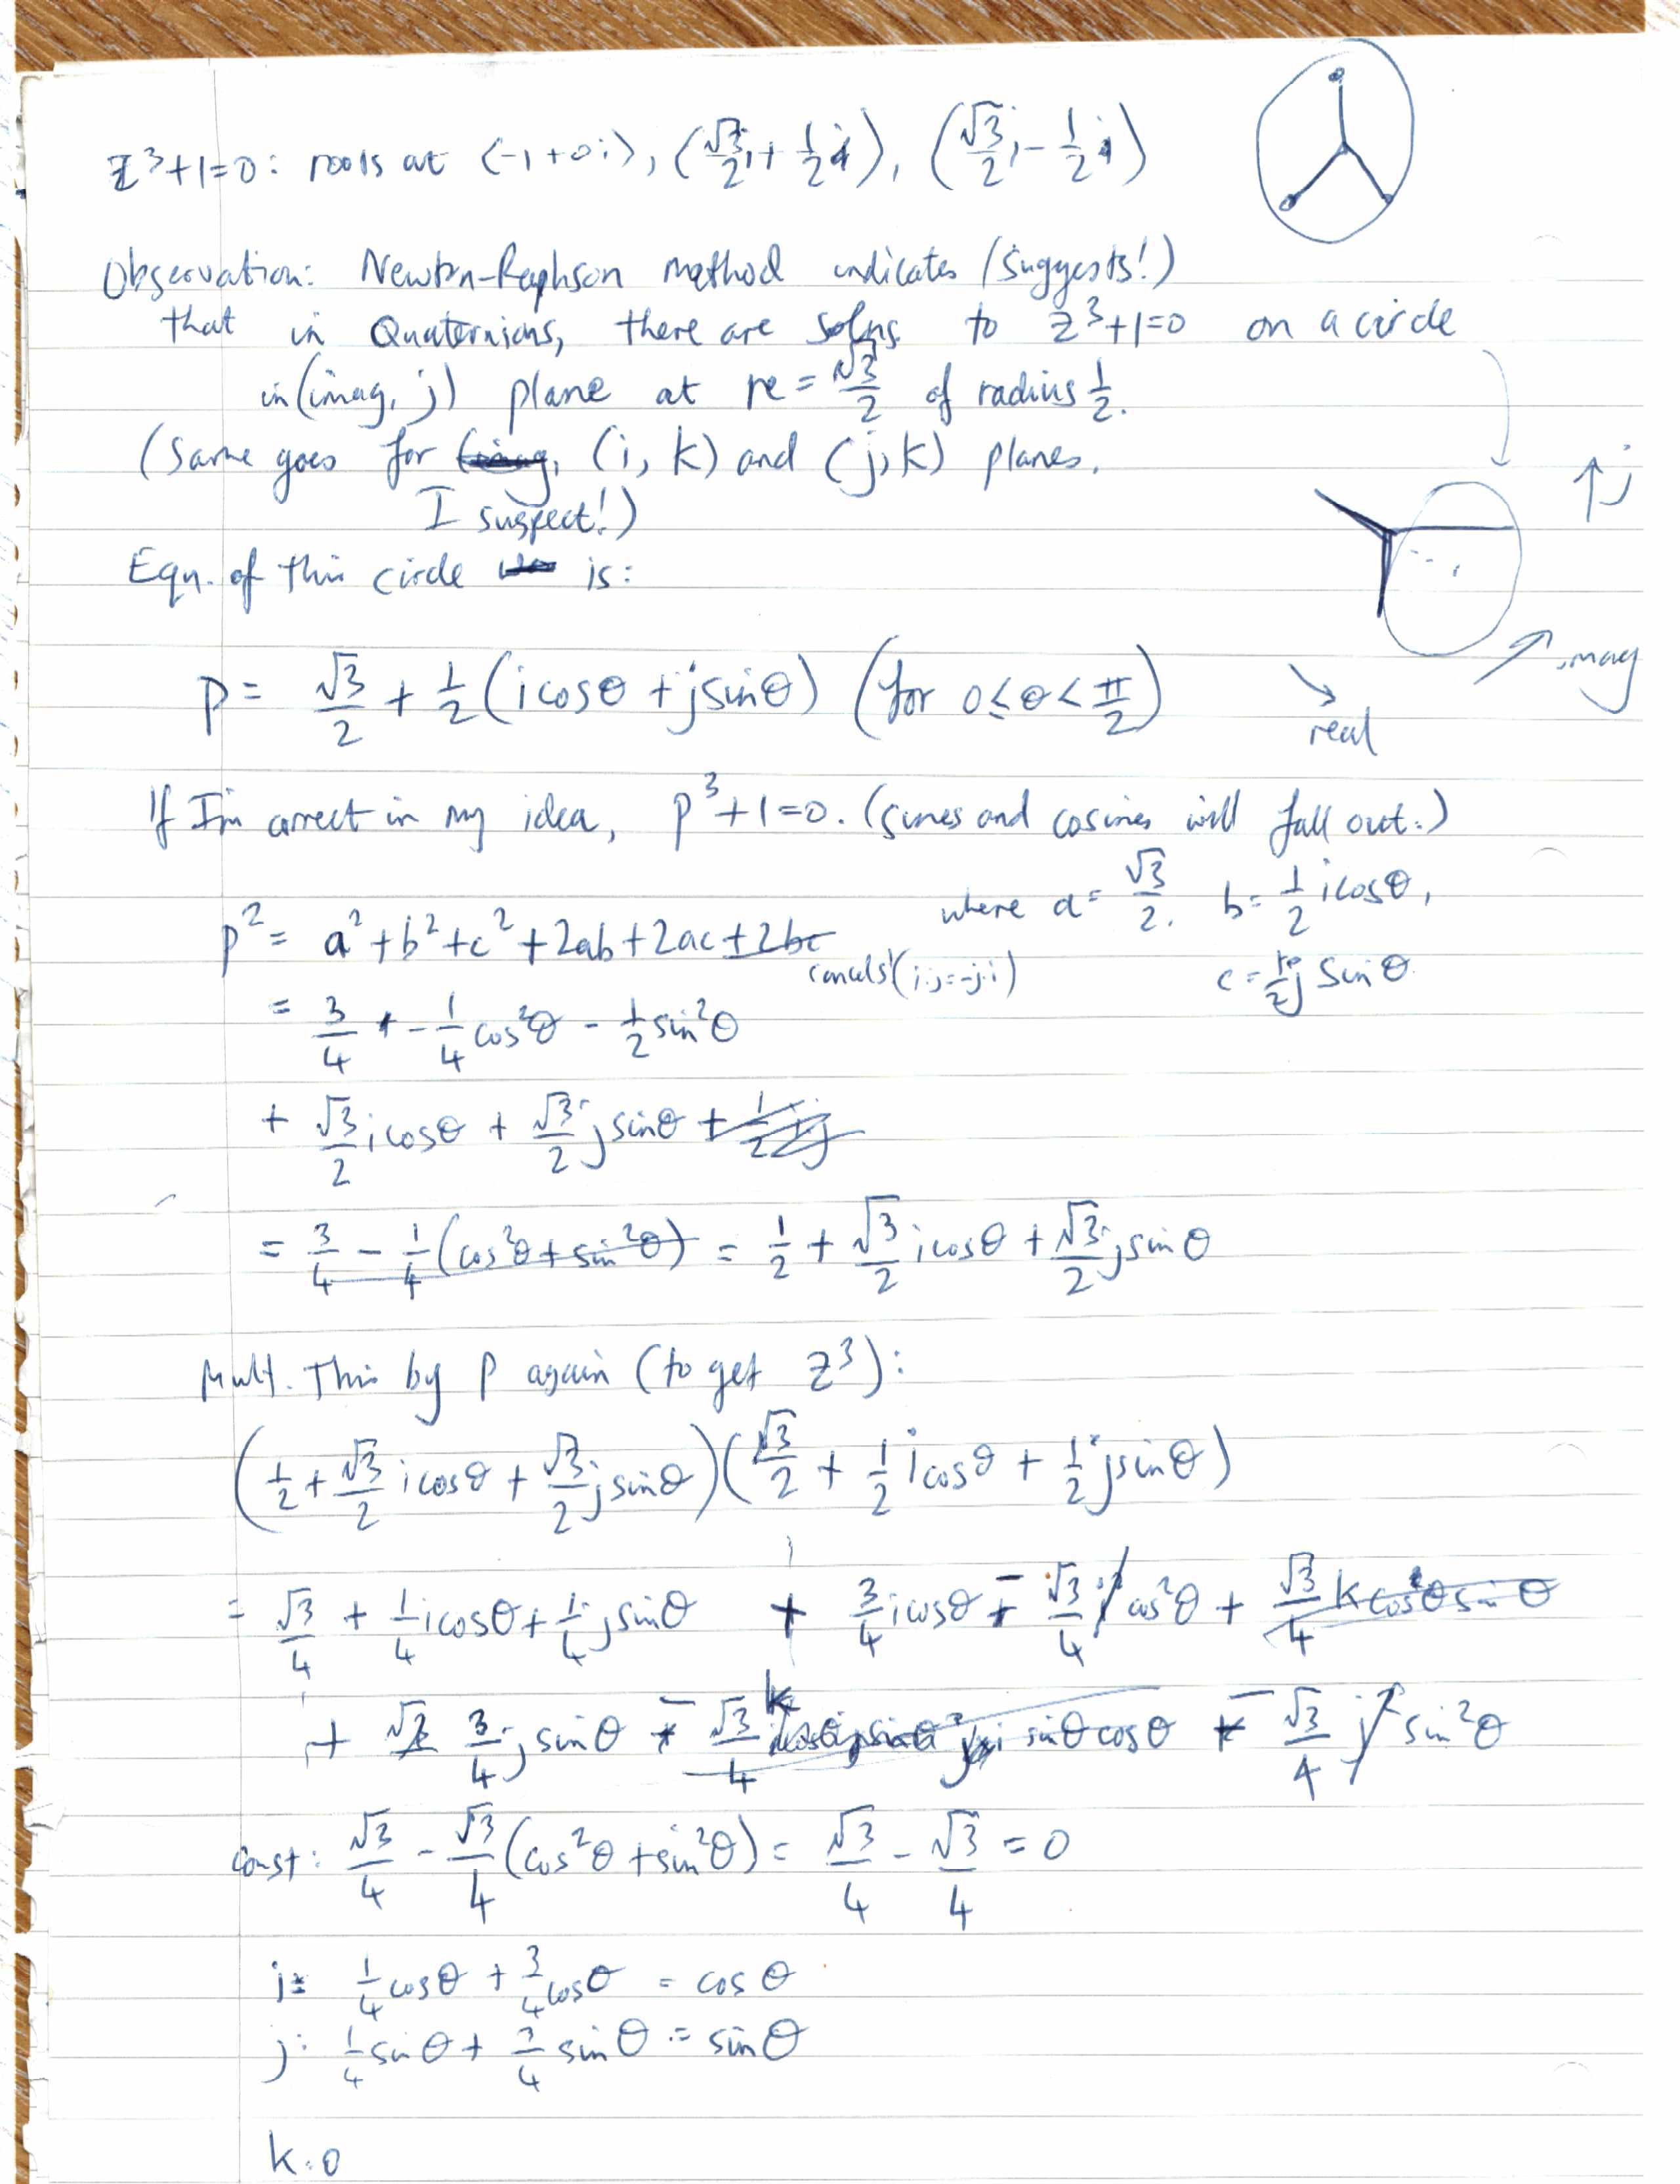 z³+1=0: roots at (-1+0i), (√3/2 + 1/2 i), (√3/2 - 1/2 i)
Observation: Newton-Raphson method indicates (suggests!)
that in Quaternions, there are solns to z³+1=0 on a circle
in (imag, j) plane at re = √3/2 of radius 1/2.
(Same goes for (i, k) and (j, k) planes.
I suspect!)
↑j
Eqn. of this circle is:
imag
p = √3/2 + 1/2 (i cosθ + j sinθ) (for 0 ≤ θ < π/2)
real
If I'm correct in my idea, p³+1=0. (sines and cosines will fall out.)
where a = √3/2. b = 1/2 i cosθ,
p² = a² + b² + c² + 2ab + 2ac + 2bc
cancels (i.j = -j.i)
c = 1/2 j sinθ
= 3/4 + - 1/4 cos²θ - 1/2 sin²θ
+ √3/2 i cosθ + √3/2 j sinθ + 1/2 ij
= 3/4 - 1/4 (cos²θ + sin²θ) = 1/2 + √3/2 i cosθ + √3/2 j sinθ
Mult. This by p again (to get z³):
(1/2 + √3/2 i cosθ + √3/2 j sinθ)(√3/2 + 1/2 i cosθ + 1/2 j sinθ)
= √3/4 + 1/4 i cosθ + 1/4 j sinθ + 3/4 i cosθ - √3/4 i² cos²θ + √3/4 k cosθ sinθ
+ 3/4 j sinθ - √3/4 k sinθ cosθ - √3/4 j² sin²θ
Const: √3/4 - √3/4 (cos²θ + sin²θ) = √3/4 - √3/4 = 0
i: 1/4 cosθ + 3/4 cosθ = cosθ
j: 1/4 sinθ + 3/4 sinθ = sinθ
k: 0